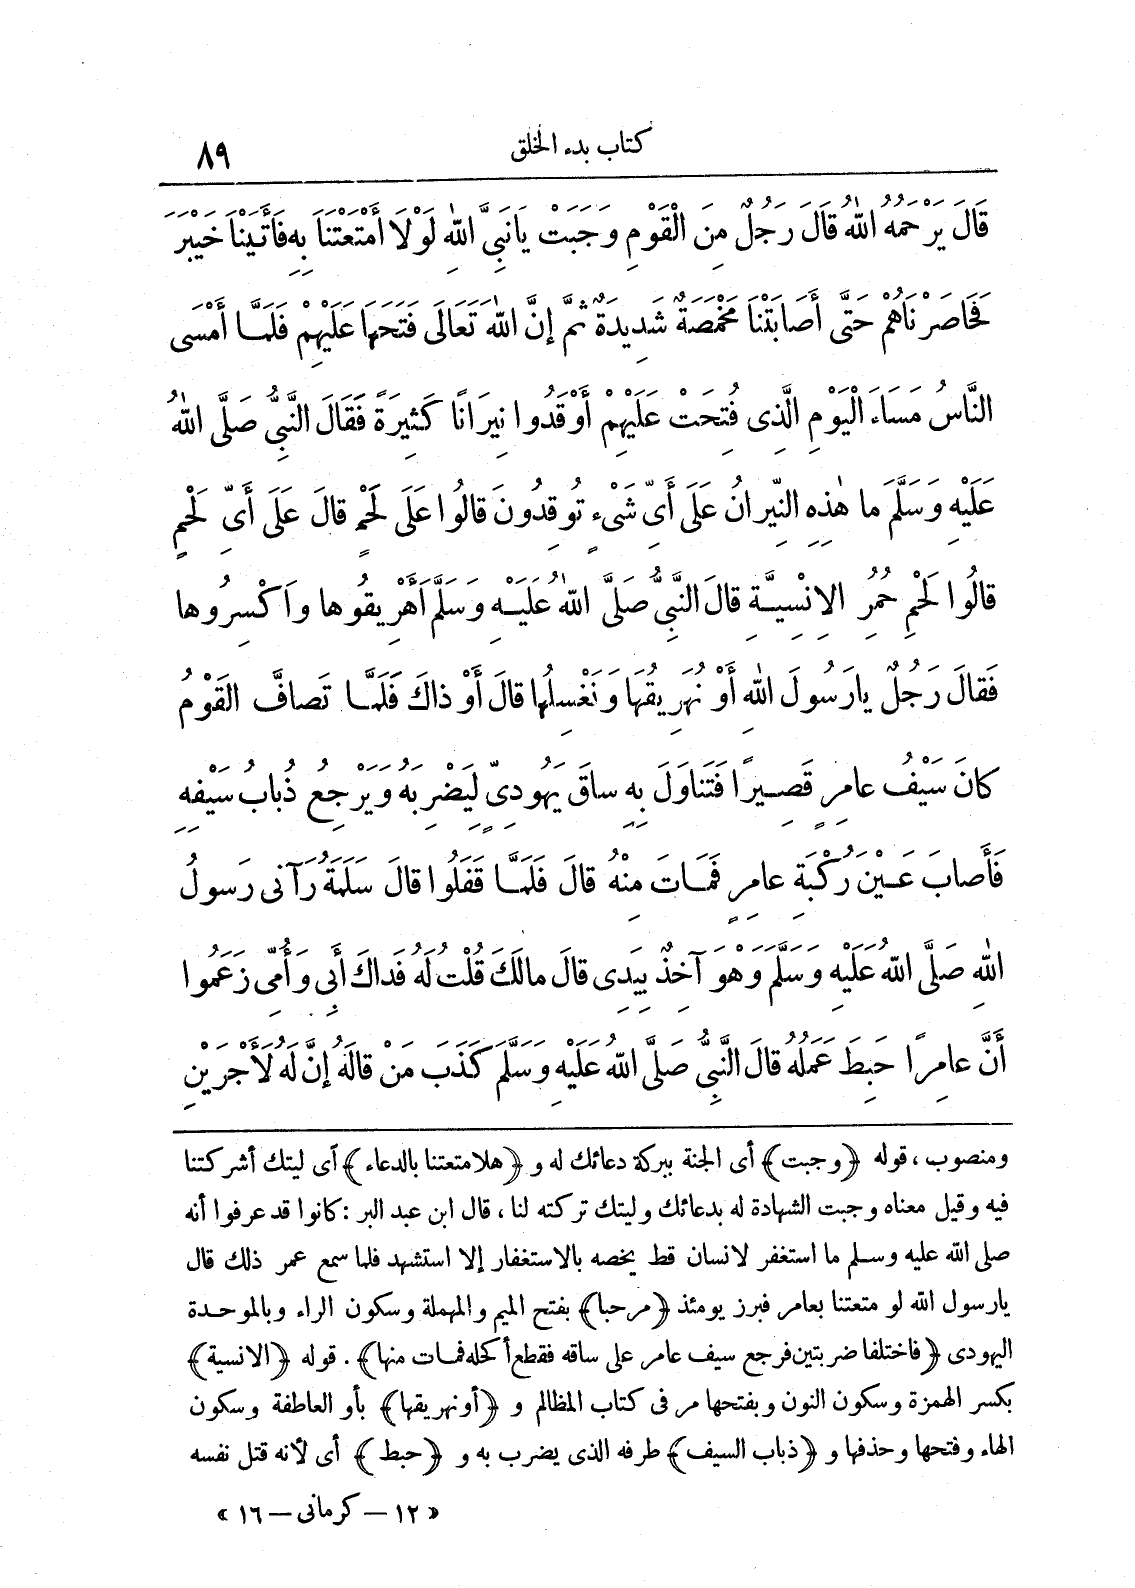 كتاب بدء الخلق ٨٩
قَالَ يَرْحَمُهُ اللهُ قَالَ رَجُلٌ مِنَ الْقَوْمِ وَجَبَتْ يَانَبِيَّ اللهِ لَوْلَا أَمْتَعْتَنَا بِهِ فَأَتَيْنَا خَيْبَرَ
فَحَاصَرْنَاهُمْ حَتَّى أَصَابَتْنَا مَخْمَصَةٌ شَدِيدَةٌ ثُمَّ إِنَّ اللهَ تَعَالَى فَتَحَهَا عَلَيْهِمْ فَلَمَّا أَمْسَى
النَّاسُ مَسَاءَ الْيَوْمِ الَّذِى فُتِحَتْ عَلَيْهِمْ أَوْقَدُوا نِيرَانًا كَثِيرَةً فَقَالَ النَّبِيُّ صَلَّى اللهُ
عَلَيْهِ وَسَلَّمَ ما هٰذِهِ النِّيرَانُ عَلَى أَىِّ شَىْءٍ تُوقِدُونَ قالُوا عَلَى لَحْمٍ قالَ عَلَى أَىِّ لَحْمٍ
قالُوا لَحْمِ حُمُرِ الإِنْسِيَّةِ قالَ النَّبِىُّ صَلَّى اللهُ عَلَيْهِ وَسَلَّمَ أَهْرِيقُوها واَكْسِرُوها
فَقالَ رَجُلٌ يارَسُولَ اللهِ أَوْ نُهَرِيقُهَا وَنَغْسِلُها قالَ أَوْ ذاكَ فَلَمَّا تَصافَّ القَوْمُ
كانَ سَيْفُ عامِرٍ قَصِيرًا فَتَناوَلَ بِهِ ساقَ يَهُودِىٍّ لِيَضْرِبَهُ وَيَرْجِعُ ذُبابُ سَيْفِهِ
فَأَصابَ عَيْنَ رُكْبَةِ عامِرٍ فَماتَ مِنْهُ قالَ فَلَمَّا قَفَلُوا قالَ سَلَمَةُ رَآنى رَسولُ
اللهِ صَلَّى اللهُ عَلَيْهِ وَسَلَّمَ وَهْوَ آخِذٌ بِيَدِى قالَ مالَكَ قُلْتُ لَهُ فَداكَ أَبِى وَأُمِّى زَعَمُوا
أَنَّ عامِرًا حَبِطَ عَمَلُهُ قالَ النَّبِىُّ صَلَّى اللهُ عَلَيْهِ وَسَلَّمَ كَذَبَ مَنْ قالَهُ إِنَّ لَهُ لَأَجْرَيْنِ
ومنصوب ، قوله ﴿وجبت﴾ أى الجنة ببركة دعائك له و ﴿هلا متعتنا بالدعاء﴾ أى ليتك أشركتنا
فيه وقيل معناه وجبت الشهادة له بدعائك وليتك تركته لنا ، قال ابن عبد البر : كانوا قد عرفوا أنه
صلى الله عليه وسلم ما استغفر لانسان قط يخصه بالاستغفار إلا استشهد فلما سمع عمر ذلك قال
يارسول الله لو متعتنا بعامر فبرز يومئذ ﴿مرحبا﴾ بفتح الميم والمهملة وسكون الراء وبالموحدة
اليهودى ﴿فاختلفا ضربتين فرجع سيف عامر على ساقه فقطع أكحله فمات منها﴾ . قوله ﴿الانسية﴾
بكسر الهمزة وسكون النون وبفتحها مر فى كتاب المظالم و ﴿أو نهريقها﴾ بأو العاطفة وسكون
الهاء وفتحها وحذفها و ﴿ذباب السيف﴾ طرفه الذى يضرب به و ﴿حبط﴾ أى لأنه قتل نفسه
« ١٢ – كرمانى – ١٦ »